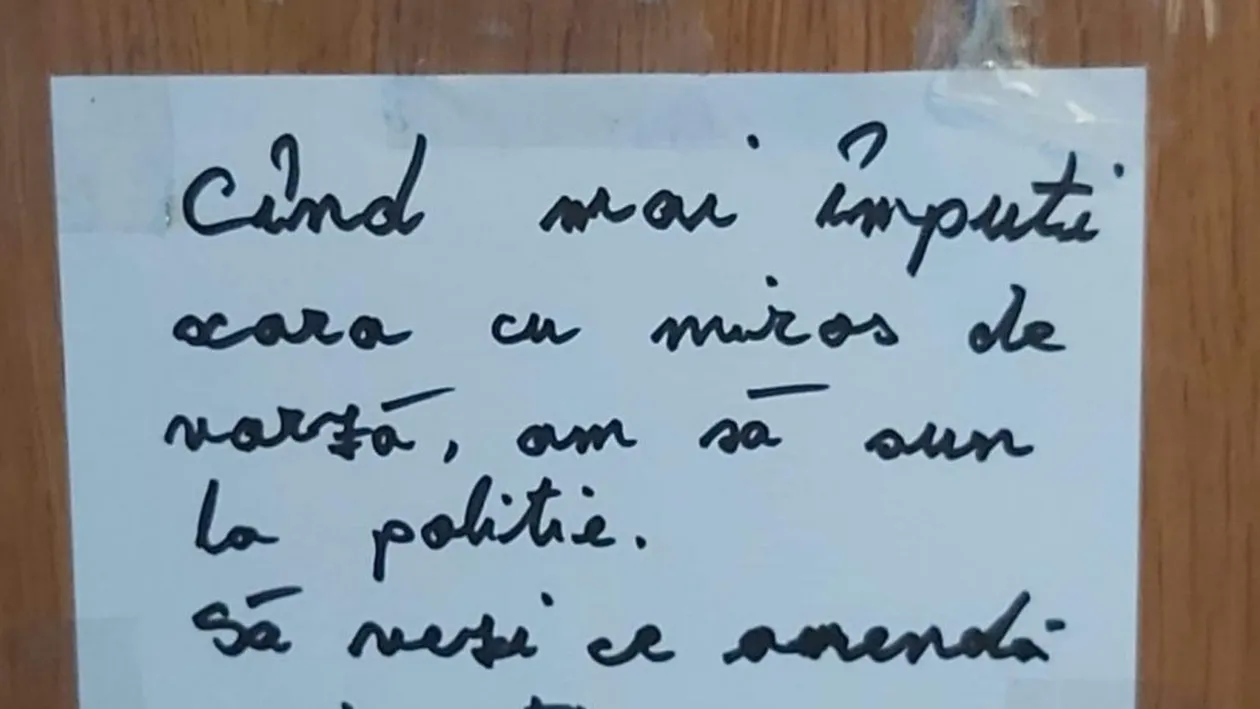 Cînd mai împuti
xara cu miros de
varză, am să sun
la politie.
Să vezi ce amendă